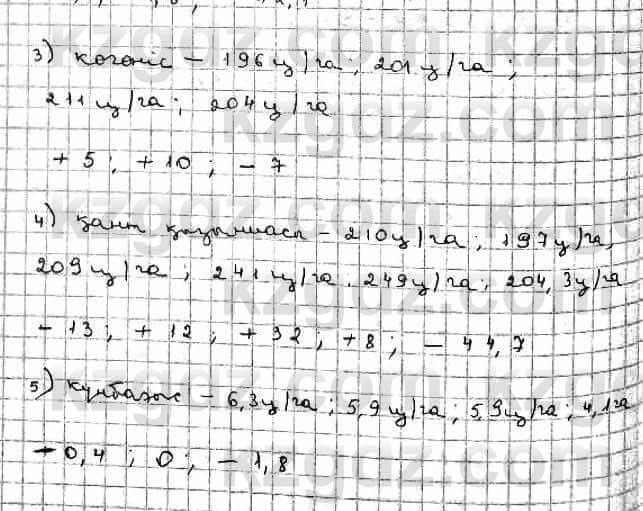 3) көгөніс – 196 ц/га; 201 ц/га;
211 ц/га; 204 ц/га
+ 5; + 10; – 7
4) қант қызылшасы – 210 ц/га; 197 ц/га,
209 ц/га; 241 ц/га. 249 ц/га; 204,3 ц/га
– 13; + 12; + 32; + 8; – 44,7
5) күнбағыс – 6,3 ц/га; 5,9 ц/га; 5,9 ц/га; 4,1 га
– 0,4; 0; – 1,8